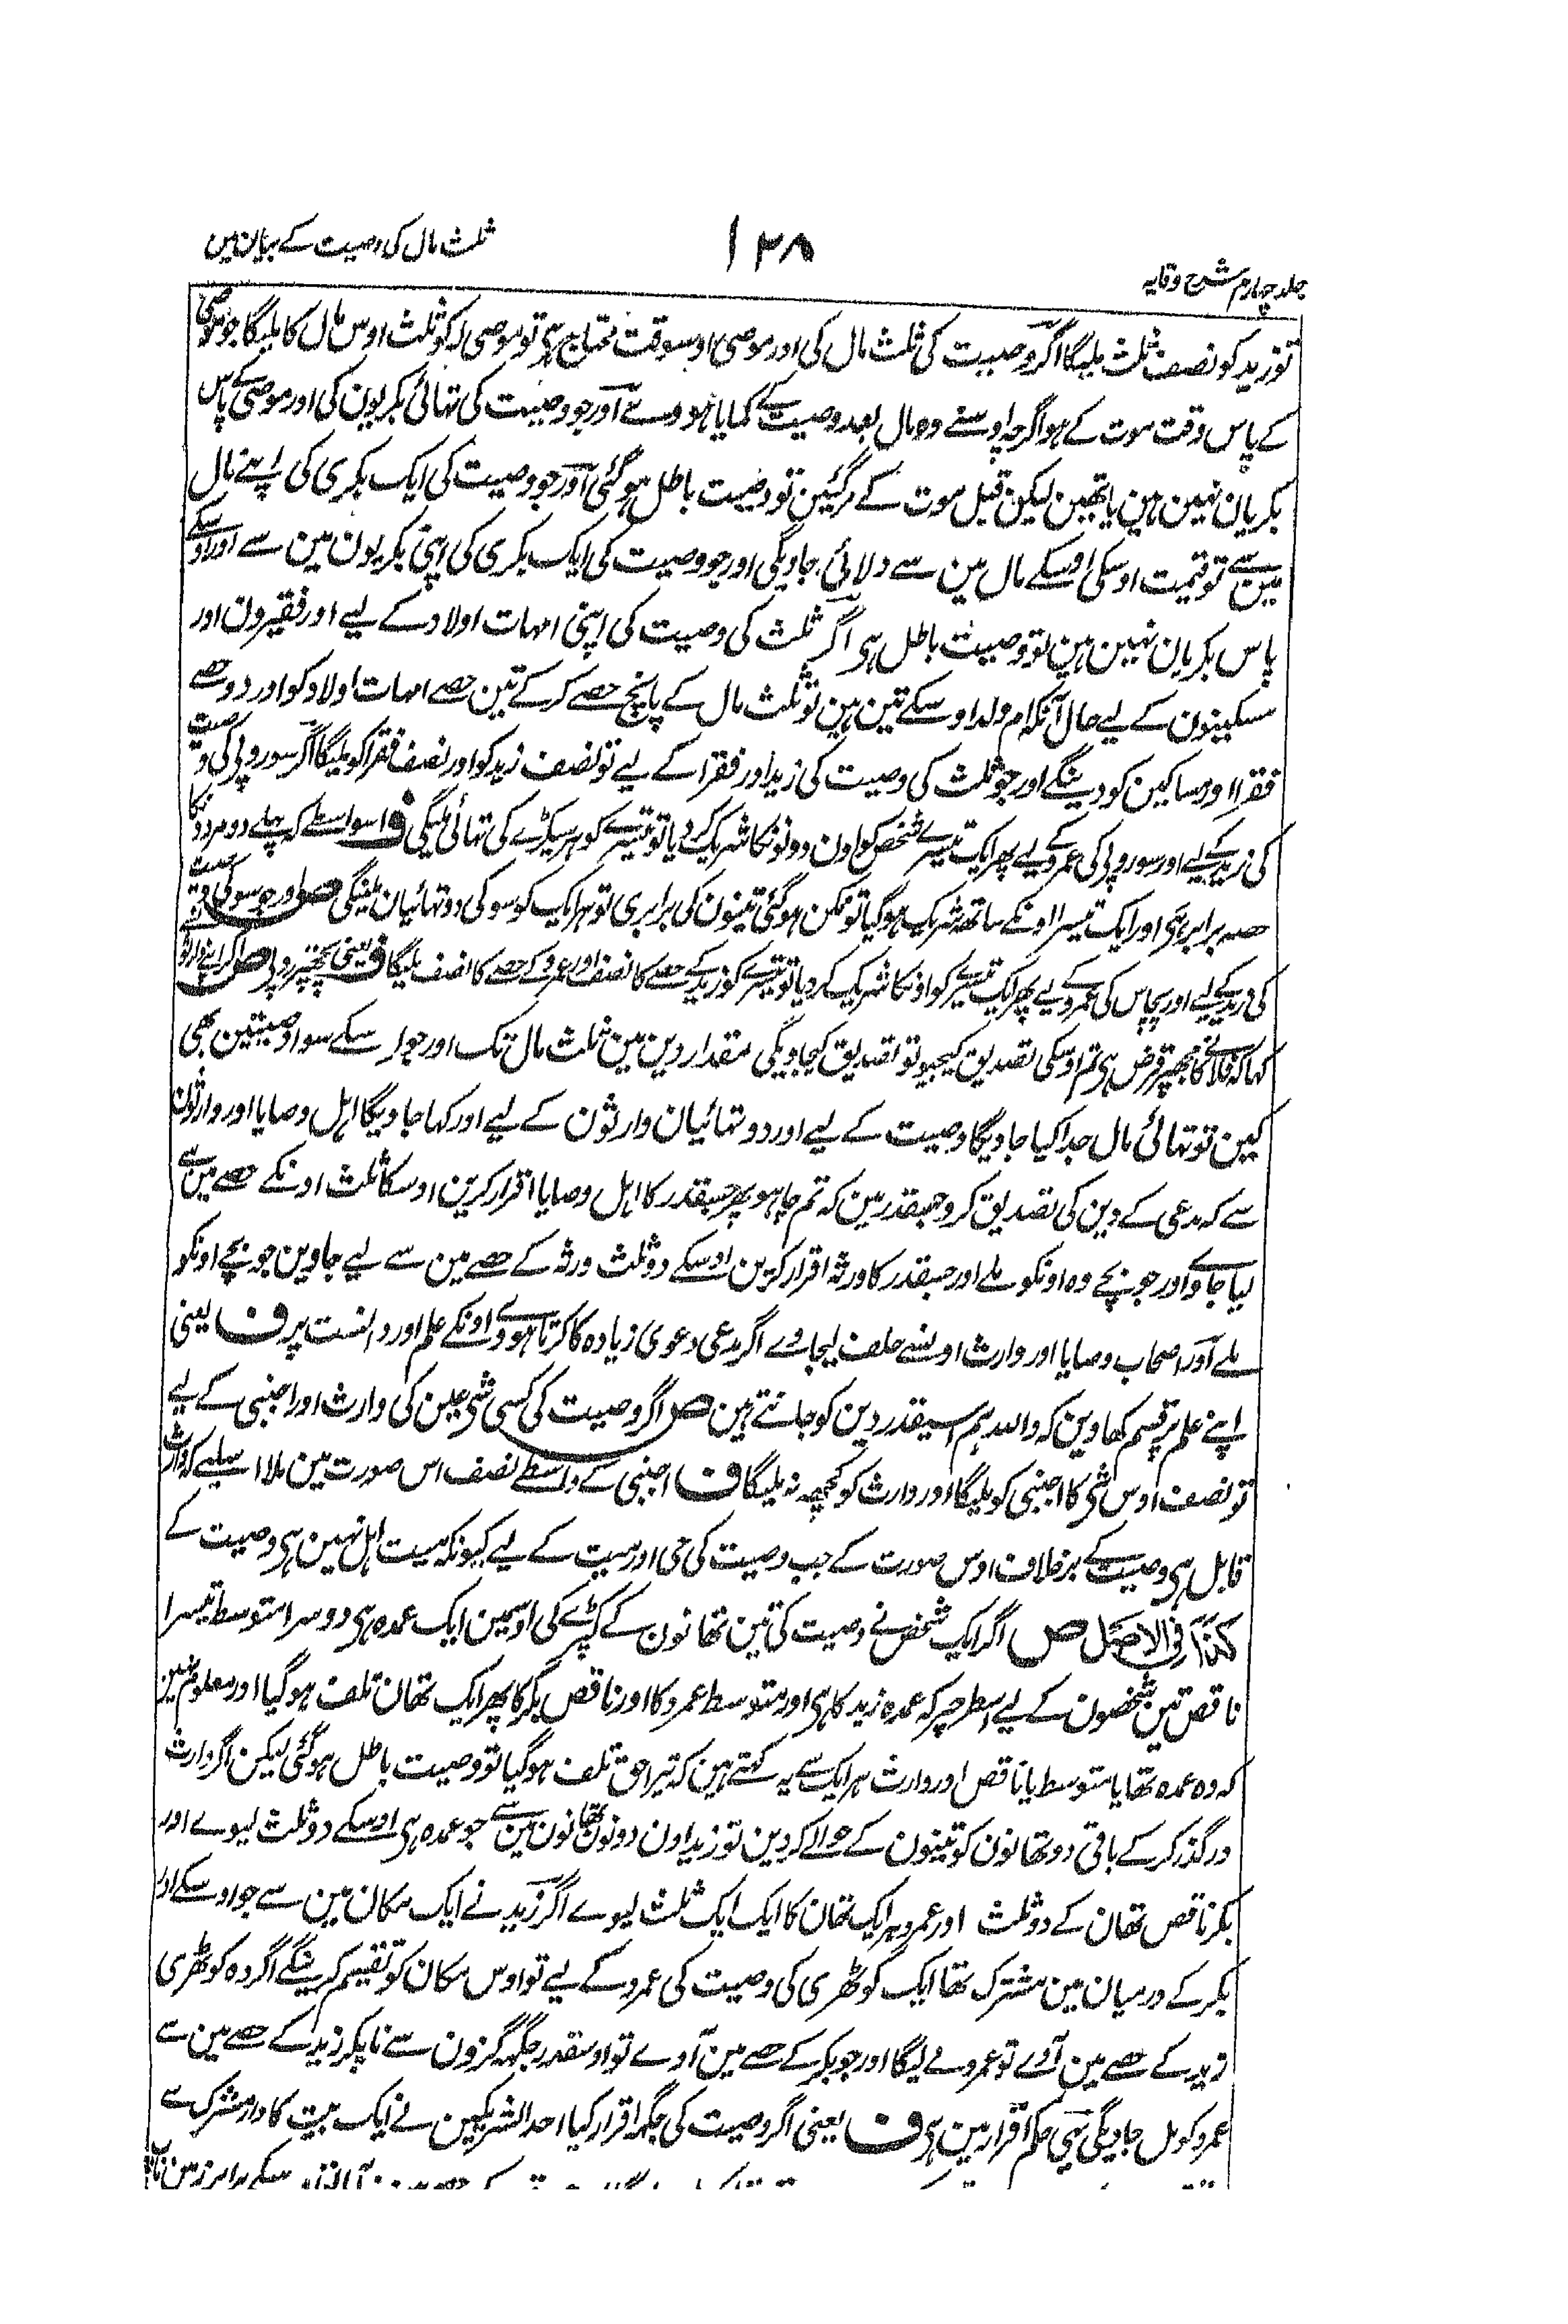 جلد چہارم شرح وقایہ
۱۲۸
ثلث مال کی وصیت کے بیان مین
تو زید کو نصف ثلث ملیگا اگر وصیت کی ثلث مال کی اور موصی اوسوقت محتاج ہی تو موصی لہ کو ثلث اوس مال کا ملیگا جو موصی
کے پاس وقت موت کے ہو اگرچہ اوسنے وہ مال بعد وصیت کے کمایا ہووے اور جو وصیت کی تہائی بکریون کی اور موصی کے پاس
بکریان نہین ہین یا تھین لیکن قبل موت کے مر گئین تو وصیت باطل ہو گئی اور جو وصیت کی ایک بکری کی اپنے مال
مین سے تو قیمت اوسکی اوسکے مال مین سے دلائی جاویگی اور جو وصیت کی ایک بکری کی اپنی بکریون مین سے اور اوسکے
پاس بکریان نہین ہین تو وصیت باطل ہی اگر ثلث کی وصیت کی اپنی امہات اولاد کے لیے اور فقیرون اور
مسکینون کے لیے حال آنکہ ام ولد اوسکے تین ہین تو ثلث مال کے پانچ حصے کر کے تین حصے امہات اولاد کو اور دو حصے
فقرا اور مساکین کو دینگے اور جو ثلث کی وصیت کی زید اور فقرا کے لیے تو نصف زید کو اور نصف فقرا کو ملیگا اگر سو روپی کی وصیت
کی زید کے لیے اور سو روپی کی عمرو کے لیے پھر ایک تیسرے شخص کو اون دونونکا شریک کر دیا تو تیسرے کو ہر سیکڑے کی تہائی ملیگی ف اسواسطے کہ پہلے دو مردونکا
حصہ برابر ہی اور ایک تیسرا اونکے ساتھ شریک ہو گیا تو ممکن ہو گئی تینون کی برابری تو ہر ایک کو سو کی دو تہائیان ملینگی ص اور جو سو کی وصیت
کی زید کے لیے اور پچاس کی عمرو کے لیے پھر ایک تیسرے کو اونکا شریک کر دیا تو تیسرے کو زید کے حصے کا نصف اور عمرو کے حصے کا نصف ملیگا ف یعنی پچھتر روپی ص اگر اپنے وارثون سے
کہا کہ فلانے کا مجھپر قرض ہی تم اوسکی تصدیق کیجیو تو تصدیق کیجاویگی مقدار دین مین ثلث مال تک اور جو اسکے سوا وصیتین بھی
کین تو تہائی مال جدا کیا جاویگا وصیت کے لیے اور دو تہائیان وارثون کے لیے اور کہا جاویگا اہل وصایا اور وارثون
سے کہ مدعی کے دین کی تصدیق کرو جسقدر مین کہ تم چاہو پھر جسقدر کا اہل وصایا اقرار کرین اوسکا ثلث اونکے حصے مین سے
لیا جاوے اور جو بچے وہ اونکو ملے اور جسقدر کا ورثہ اقرار کرین اوسکے دو ثلث ورثہ کے حصے مین سے لیے جاوین جو بچے اونکو
ملے اور اصحاب وصایا اور وارث اونسے حلف لیجاوے اگر مدعی دعوی زیادہ کا کرتا ہووے اونکے علم اور دانست پر ف یعنی
اپنے علم پر قسم کھاوین کہ واللہ ہم اسیقدر دین کو جانتے ہین ص اگر وصیت کی کسی شی معین کی وارث اور اجنبی کے لیے
تو نصف اوس شی کا اجنبی کو ملیگا اور وارث کو کچھہ نہ ملیگا ف اجنبی کے واسطے نصف اس صورت مین ملا اسلیے کہ وارث
قابل ہی وصیت کے برخلاف اوس صورت کے جب وصیت کی حی اور میت کے لیے کیونکہ میت اہل نہین ہی وصیت کے
کذا فی الاصل ص اگر ایک شخص نے وصیت کی تین تھانون کے کپڑے کی اوسمین ایک عمدہ ہی دوسرا متوسط تیسرا
ناقص تین شخصون کے لیے اسطرحپر کہ عمدہ زید کا ہی اور متوسط عمرو کا اور ناقص بکر کا پھر ایک تھان تلف ہو گیا اور معلوم نہین
کہ وہ عمدہ تھا یا متوسط یا ناقص اور وارث ہر ایک سے یہ کہتے ہین کہ تیرا حق تلف ہو گیا تو وصیت باطل ہو گئی لیکن اگر وارث
درگذر کر کے باقی دو تھانون کو تینون کے حوالے کر دین تو زید اون دونون تھانون مین سے جو عمدہ ہی اوسکے دو ثلث لیوے اور
بکر ناقص تھان کے دو ثلث اور عمرو ہر ایک تھان کا ایک ایک ثلث لیوے اگر زید نے ایک مکان مین سے جو اوسکے اور
بکر کے درمیان مین مشترک تھا ایک کوٹھری کی وصیت کی عمرو کے لیے تو اوس مکان کو تقسیم کرینگے اگر وہ کوٹھری
زید کے حصے مین آوے تو عمرو لے لیگا اور جو بکر کے حصے مین آوے تو اوسقدر جگہہ گزون سے ناپکر زید کے حصے مین سے
عمرو کو مل جاویگی یہی حکم اقرار مین ہی ف یعنی اگر وصیت کی جگہہ اقرار کیا احد الشریکین نے ایک بیت کا دار مشترک سے